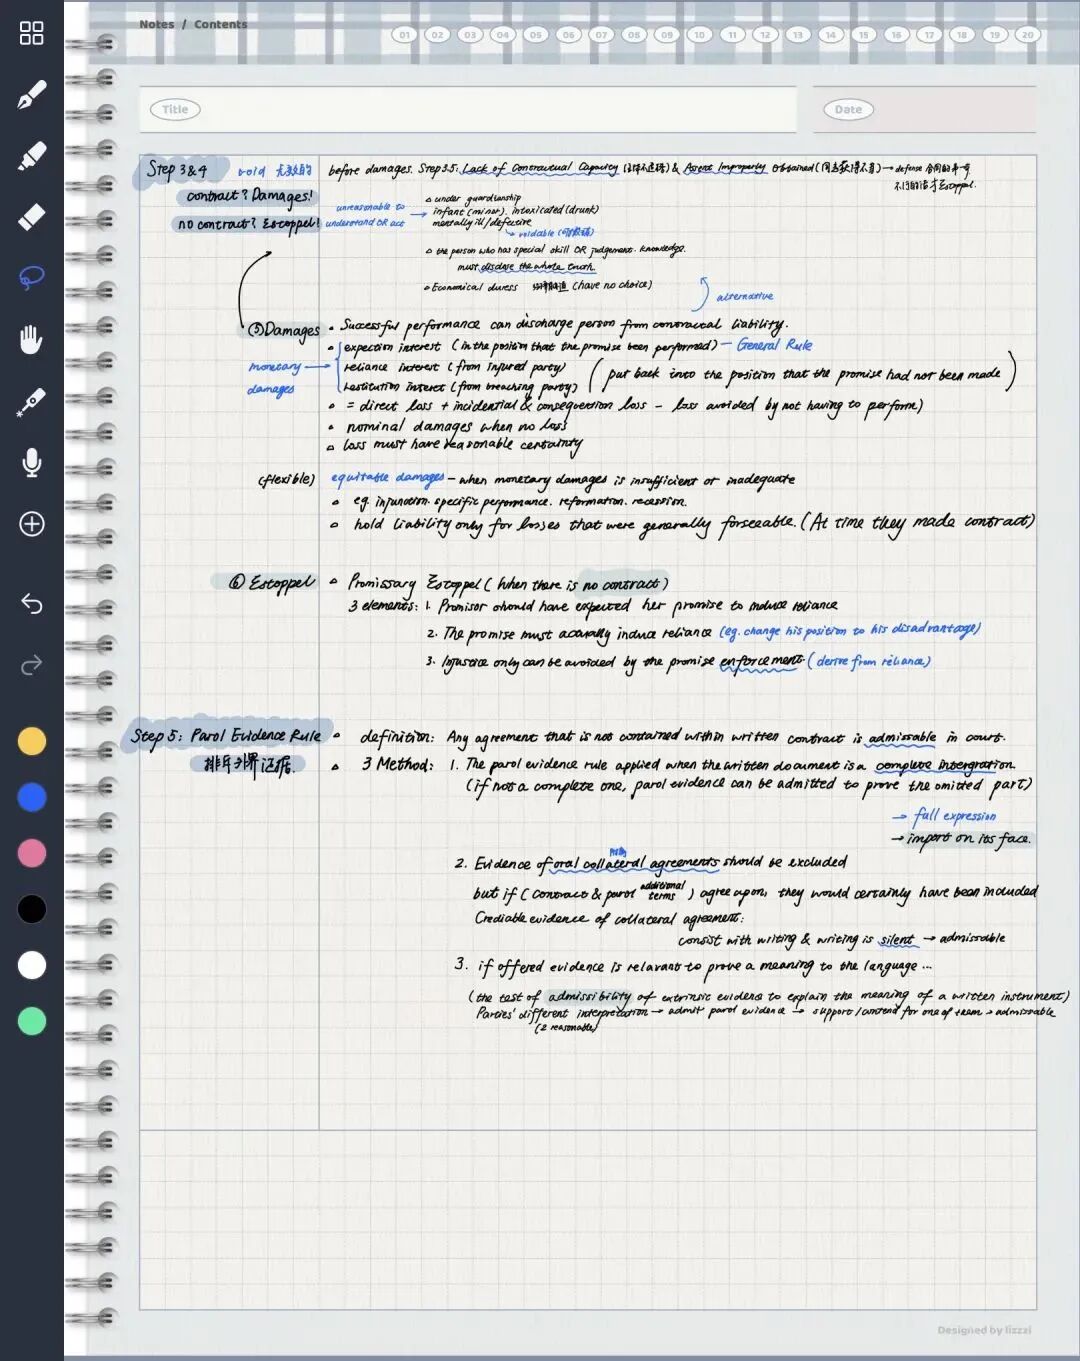 Notes / Contents
01 02 03 04 05 06 07 08 09 10 11 12 13 14 15 16 17 18 19 20
Title
Date
Step 3&4
void 无效的
contract? Damages!
no contract? Estoppel!
before damages. Step3.5: Lack of Contractual Capacity & Assent Improperly Obtained → defense
不行的话才Estoppel.
unreasonable to
understand OR act
under guardianship
infant (minor). intoxicated (drunk)
mentally ill/defective
voidable
the person who has special skill OR judgement. knowledge.
must disclose the whole truth.
Economical duress (have no choice)
alternative
⑤Damages
Successful performance can discharge person from contractual liability.
expection interest (in the position that the promise been performed) — General Rule
monetary
damages
reliance interest (from injured party)
restitution interest (from breaching party)
(put back into the position that the promise had not been made)
= direct loss + incidential & consequention loss - loss avoided by not having to perform)
nominal damages when no loss
loss must have reasonable certainty
(flexible)
equitable damages — when monetary damages is insufficient or inadequate
eg. injunction. specific performance. reformation. recession.
hold liability only for losses that were generally forseeable. (At time they made contract)
⑥ Estoppel
Promissary Estoppel (when there is no contract)
3 elements: 1. Promisor should have expected her promise to induce reliance
2. The promise must actually induce reliance (eg. change his position to his disadvantage)
3. Injustice only can be avoided by the promise enforcement (derive from reliance)
Step 5: Parol Evidence Rule
definition: Any agreement that is not contained within written contract is admissable in court.
3 Method: 1. The parol evidence rule applied when the written document is a complete intergration.
(if not a complete one, parol evidence can be admitted to prove the omitted part)
→ full expression
→ import on its face.
2. Evidence of oral collateral agreements should be excluded
but if (contract & parol additional terms) agree upon, they would certainly have been included
Crediable evidence of collateral agreement:
consist with writing & writing is silent → admissable
3. if offered evidence is relavant to prove a meaning to the language ...
(the test of admissibility of extrinsic evidence to explain the meaning of a written instrument)
Parties' different interpretation → admit parol evidence → support/contend for one of them → admissable
(2 reasonable)
Designed by lizzzi